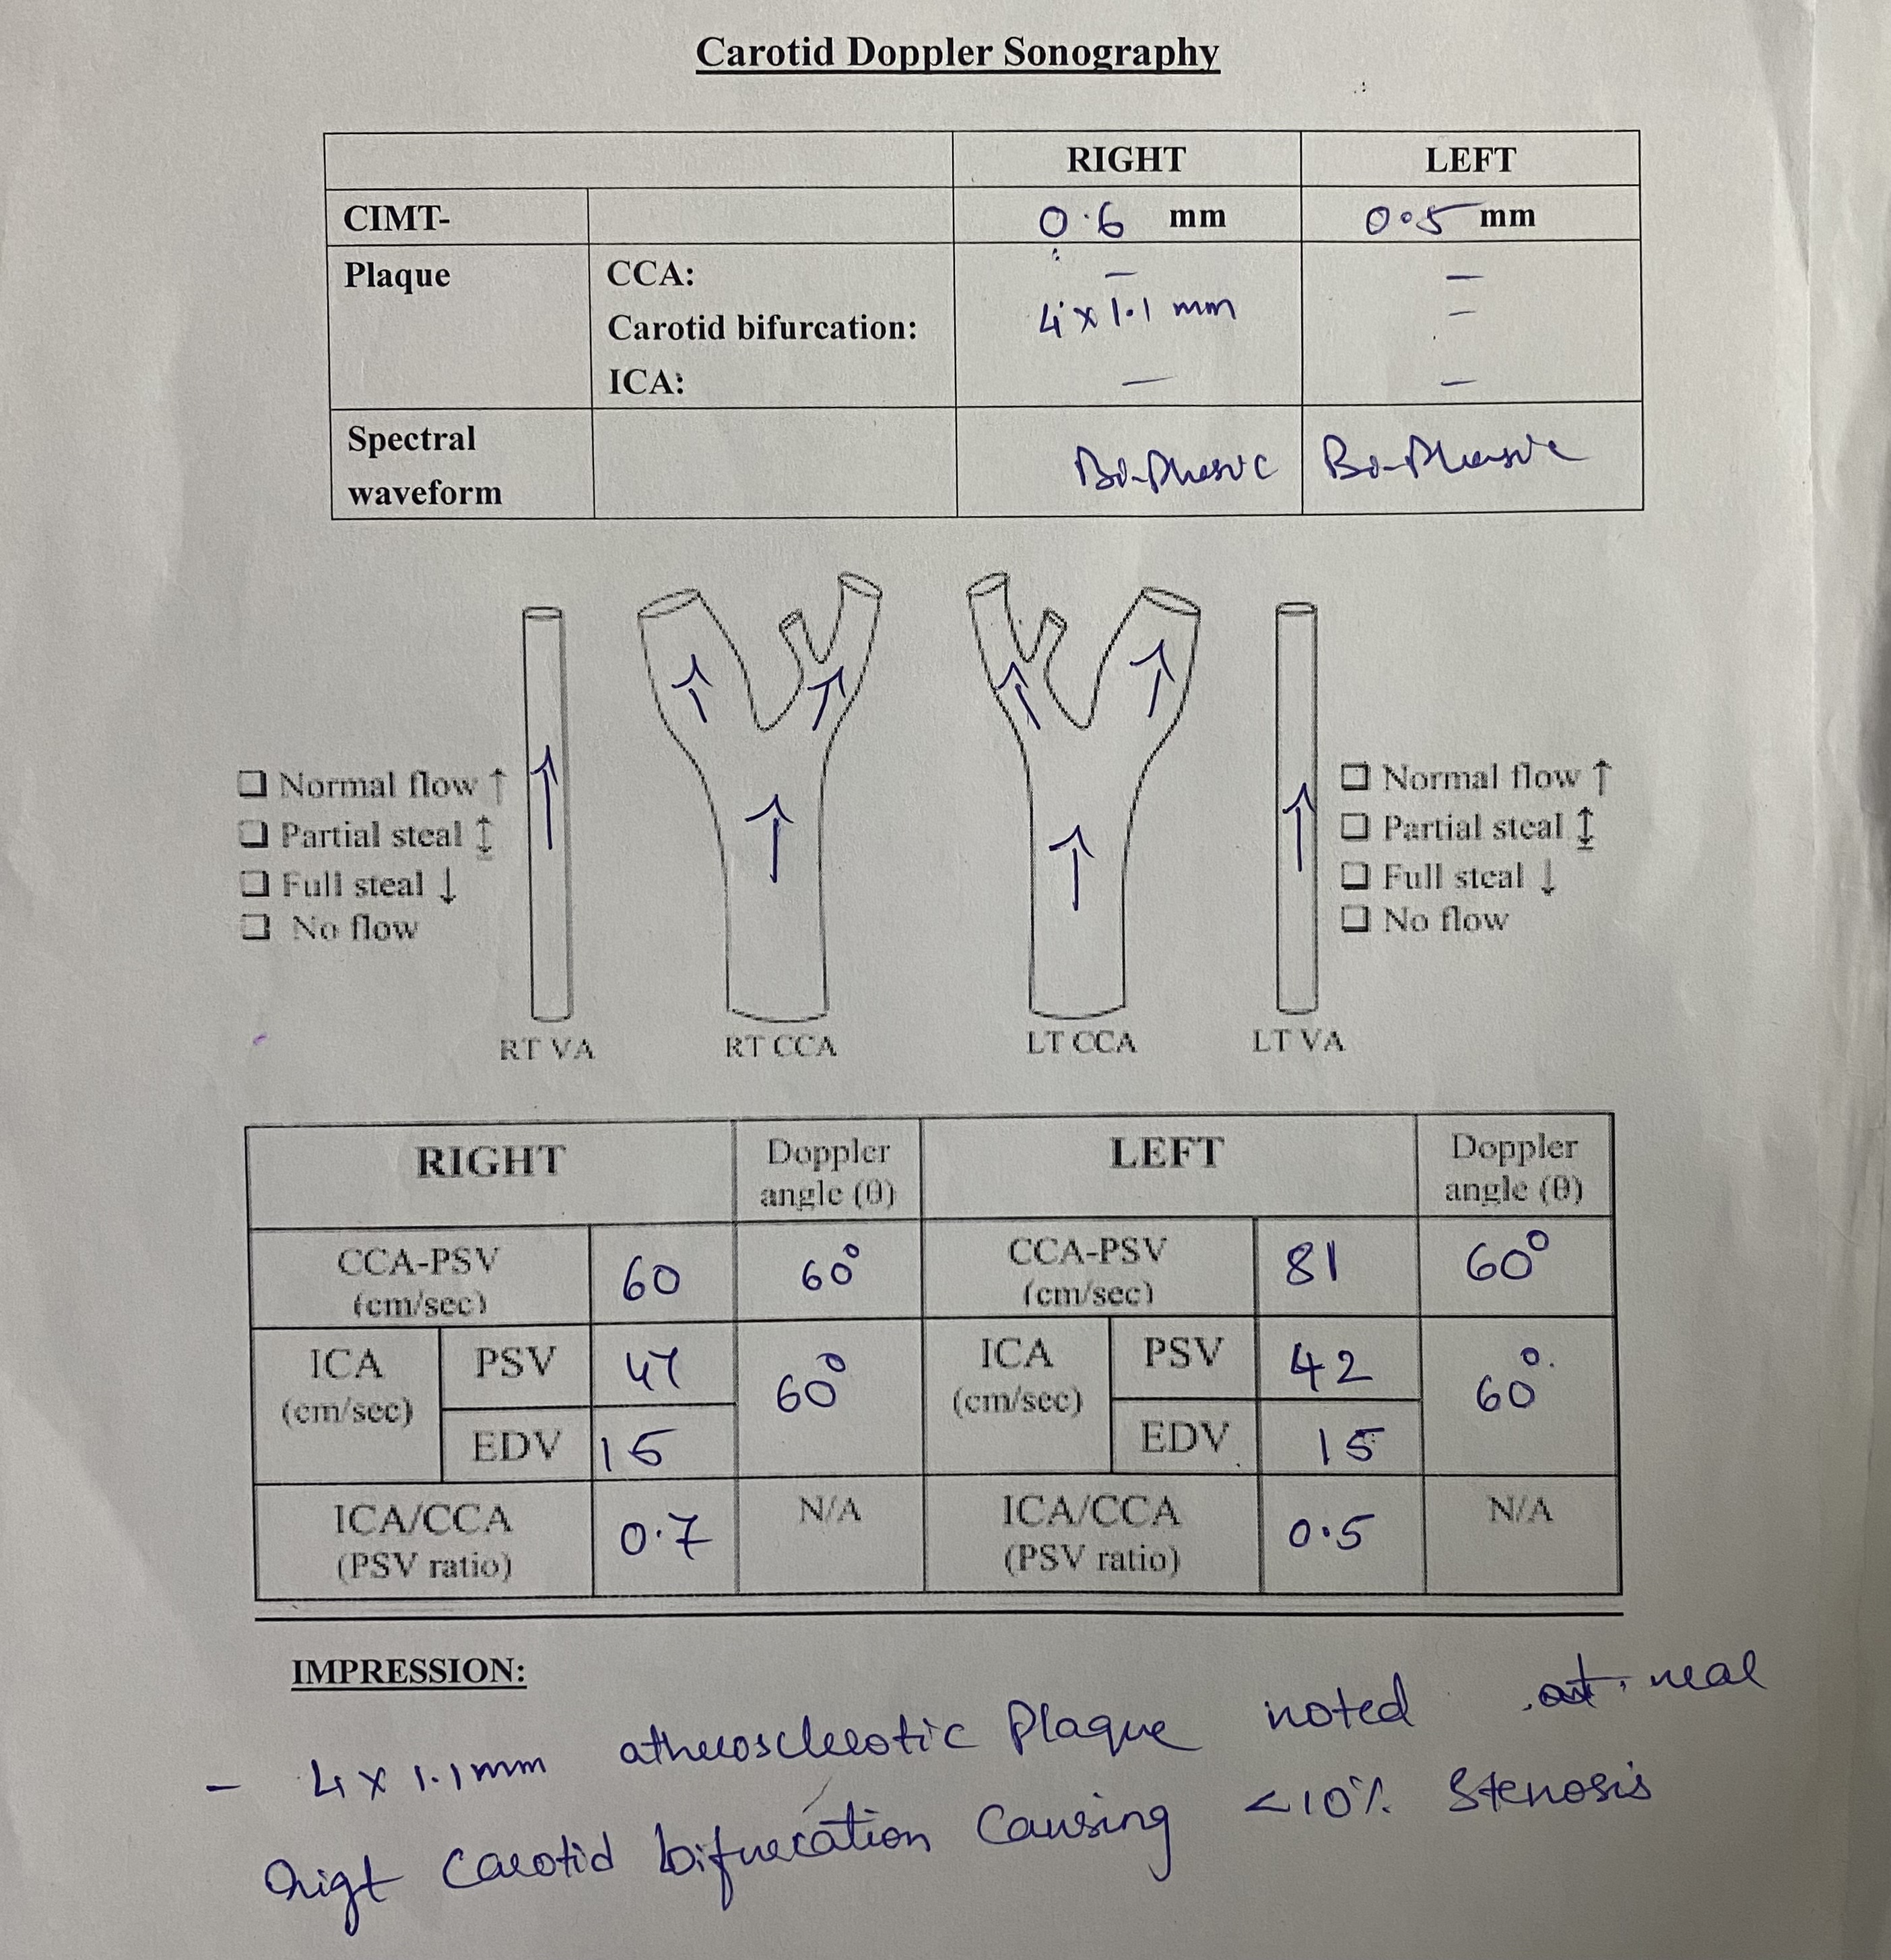 Carotid Doppler Sonography
RIGHT LEFT
CIMT- 0.6 mm 0.5 mm
Plaque CCA: — —
Carotid bifurcation: 4 x 1.1 mm —
ICA: — —
Spectral waveform Bi-Phasic Bi-Phasic
❑ Normal flow ↑
❑ Partial steal ↕
❑ Full steal ↓
❑ No flow
RT VA RT CCA LT CCA LT VA
❑ Normal flow ↑
❑ Partial steal ↕
❑ Full steal ↓
❑ No flow
RIGHT Doppler angle (θ) LEFT Doppler angle (θ)
CCA-PSV (cm/sec) 60 60° CCA-PSV (cm/sec) 81 60°
ICA (cm/sec) PSV 47 60° ICA (cm/sec) PSV 42 60°
EDV 15 EDV 15
ICA/CCA (PSV ratio) 0.7 N/A ICA/CCA (PSV ratio) 0.5 N/A
IMPRESSION:
- 4 x 1.1mm atherosclerotic Plaque noted at near
Rigt Carotid bifurcation Causing <10% Stenosis